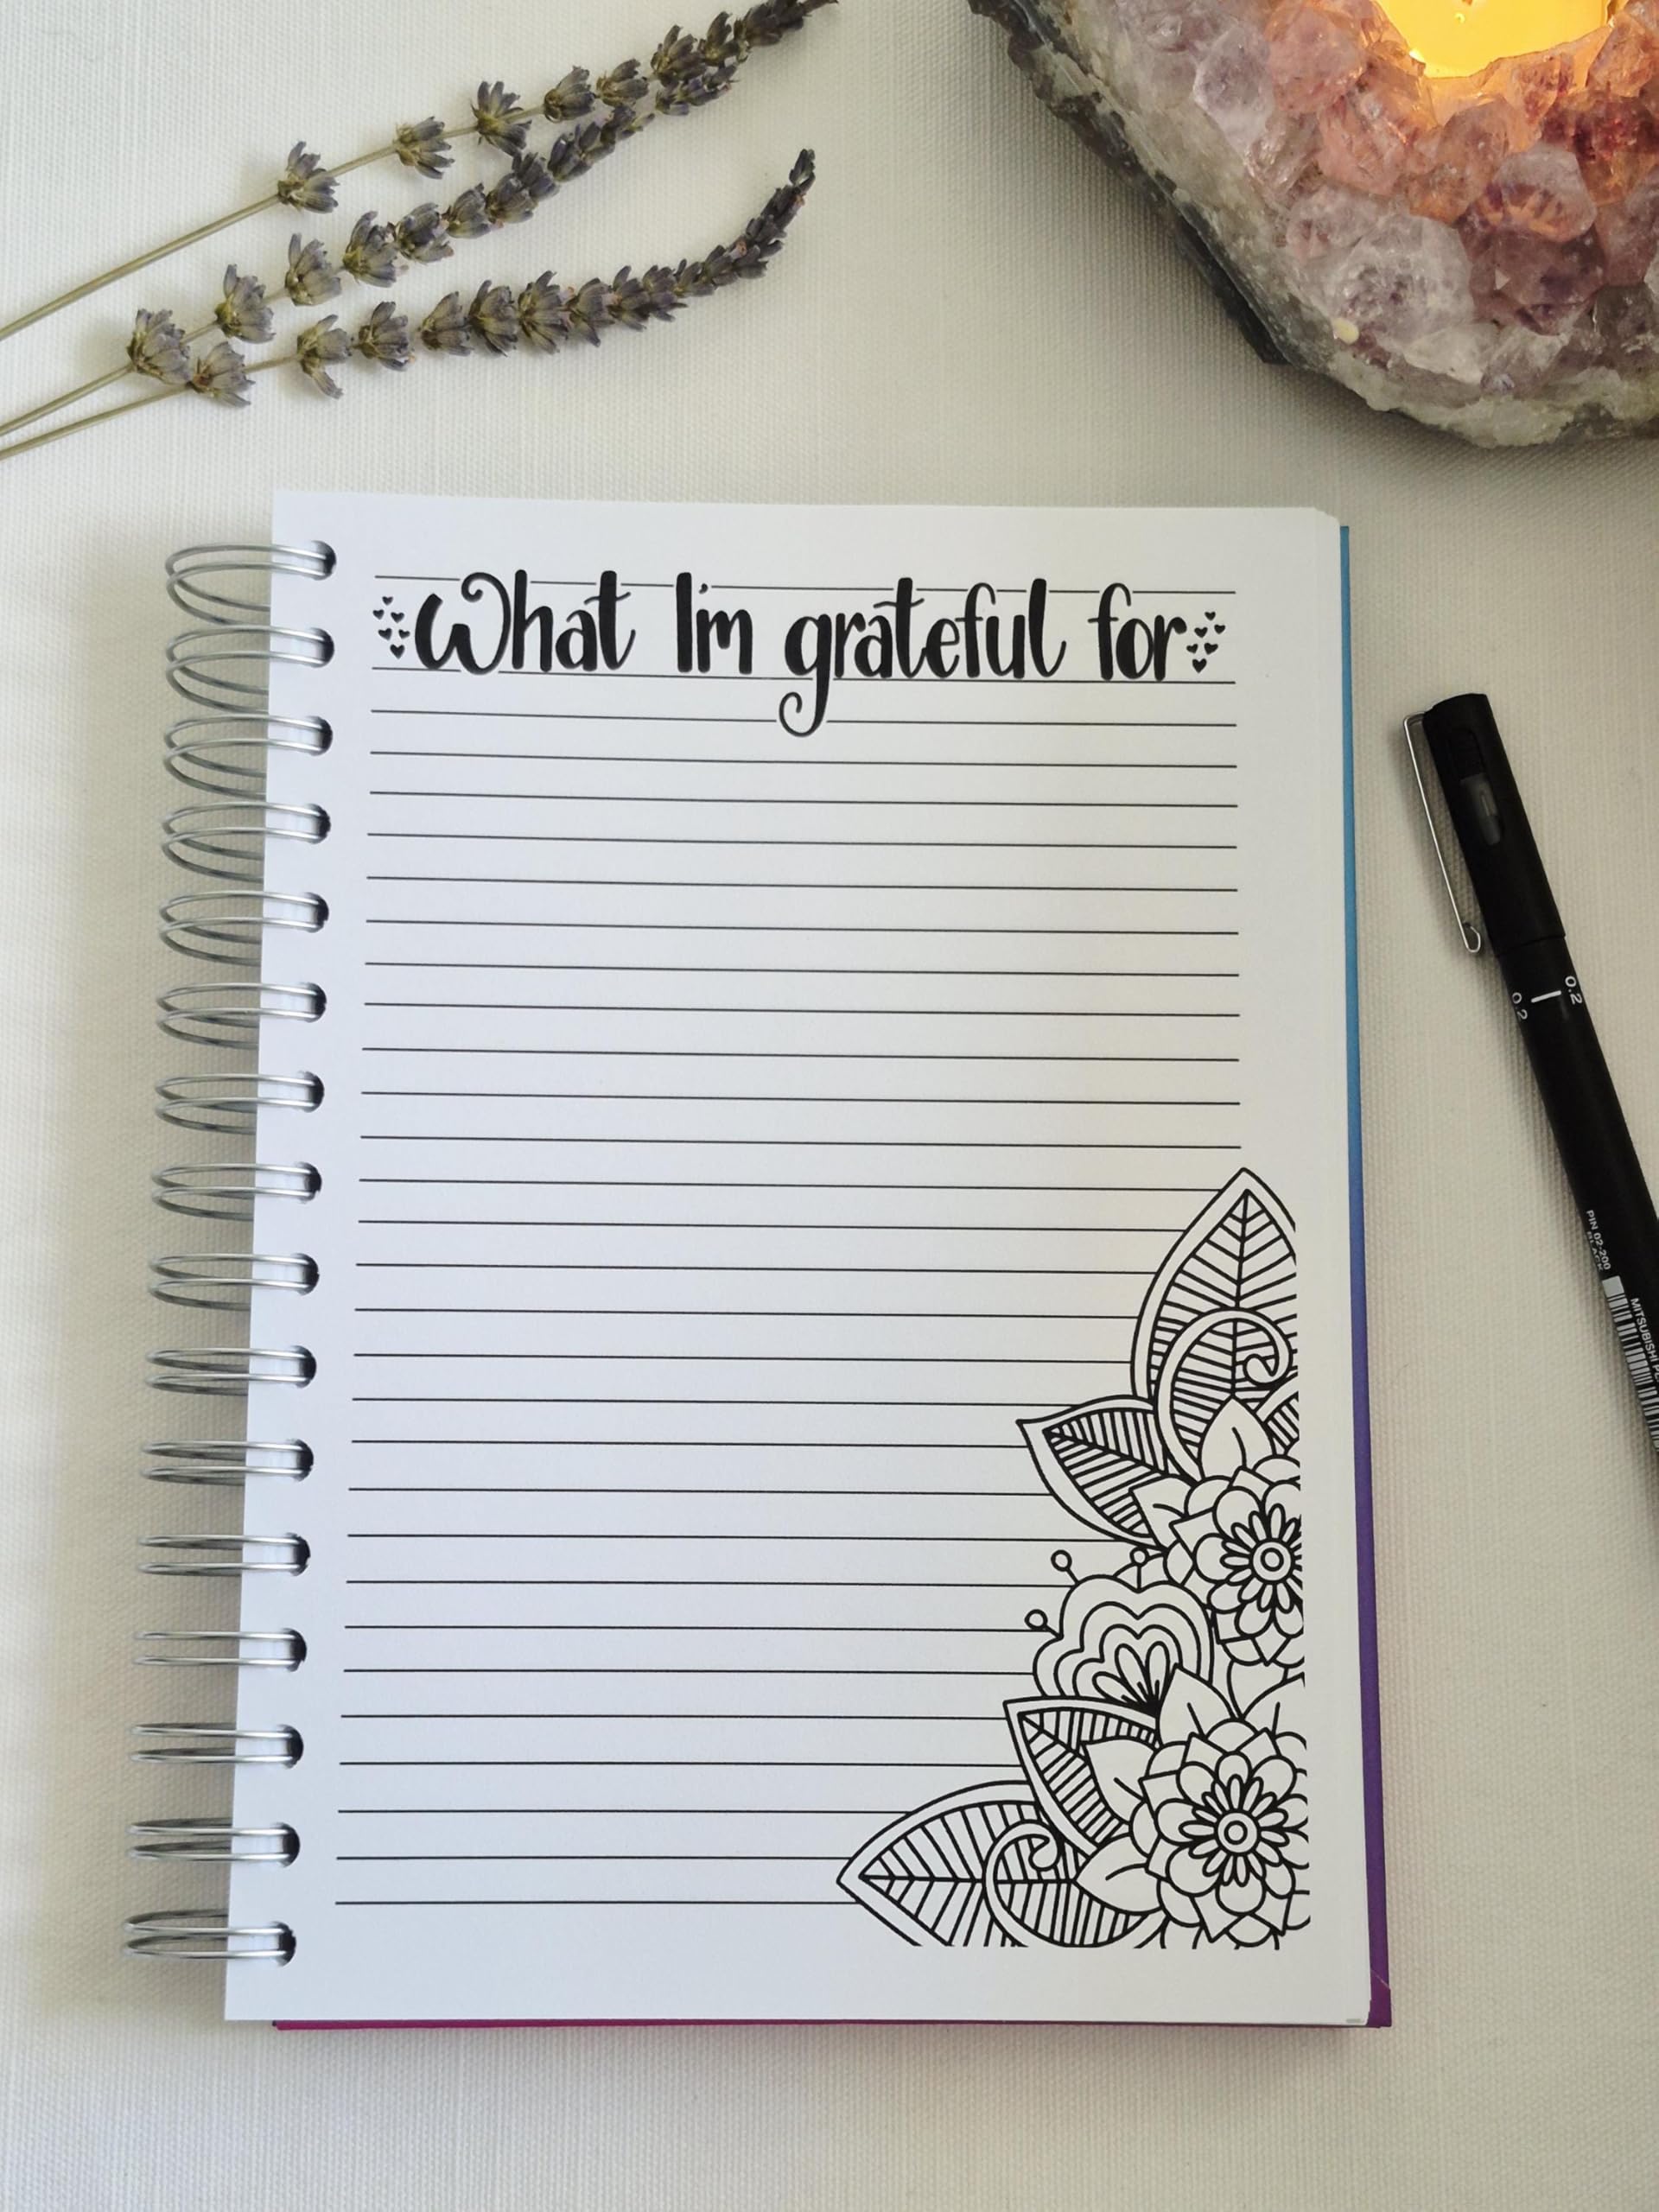 What I'm grateful for
0.2
0.2
PIN 02-200
BLACK
MITSUBISHI